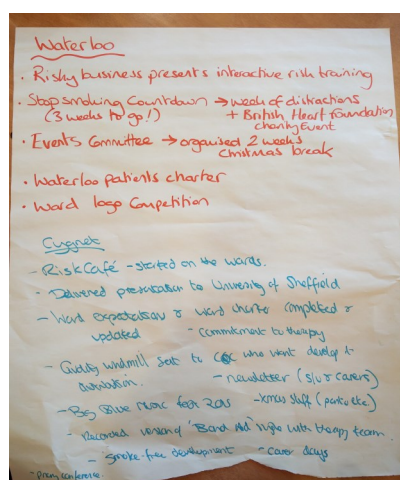 Waterloo
· Risky business presents interactive risk training
· Stop smoking Countdown → week of distractions
(3 weeks to go!) + British Heart Foundation
charity Event
· Events Committee → organised 2 weeks
Christmas break
· Waterloo patients charter
· Ward logo Competition
Cygnet
- Risk Café - started on the wards.
- Delivered presentation to University of Sheffield
- Ward expectation & ward charter completed &
updated - commitment to therapy
- Quality windmill sent to CQC who want develop it
- newsletter (s/u & carers)
- Big Blue music fest 2015 - Xmas stuff (panto etc.)
- Recorded version of "Band Aid" night with therapy team
- smoke-free development - carer days
- conference.